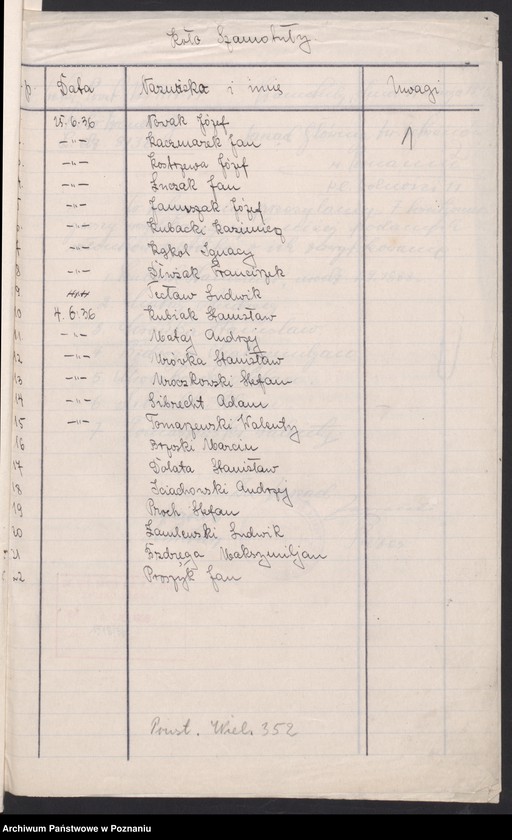 Koło Szamotuły
Data Nazwiska i imię Uwagi
25.6.36 Nowak Józef
-"- Kaczmarek Jan 1
-"- Kostrzewa Józef
-"- Jan
-"- Januszak Józef
-"- Kubacki Kazimierz
-"- Kąkol Ignacy
8 -"- Franciszek
9 Tecław Ludwik
10 4.6.36 Kubiak Stanisław
11 -"- Mataj Andrzej
12 -"- Mrówka Stanisław
13 -"- Mroczkowski Stefan
14 -"- Gibrecht Adam
15 -"- Tomaszewski Walenty
16 Brzoski Marcin
17 Dolata Stanisław
18 Sciachowski Andrzej
19 Proch Stefan
20 Ludwik
21 Szdręga Maksymiljan
22 Proszyk Jan
Powst. Wiel. 352
Archiwum Państwowe w Poznaniu